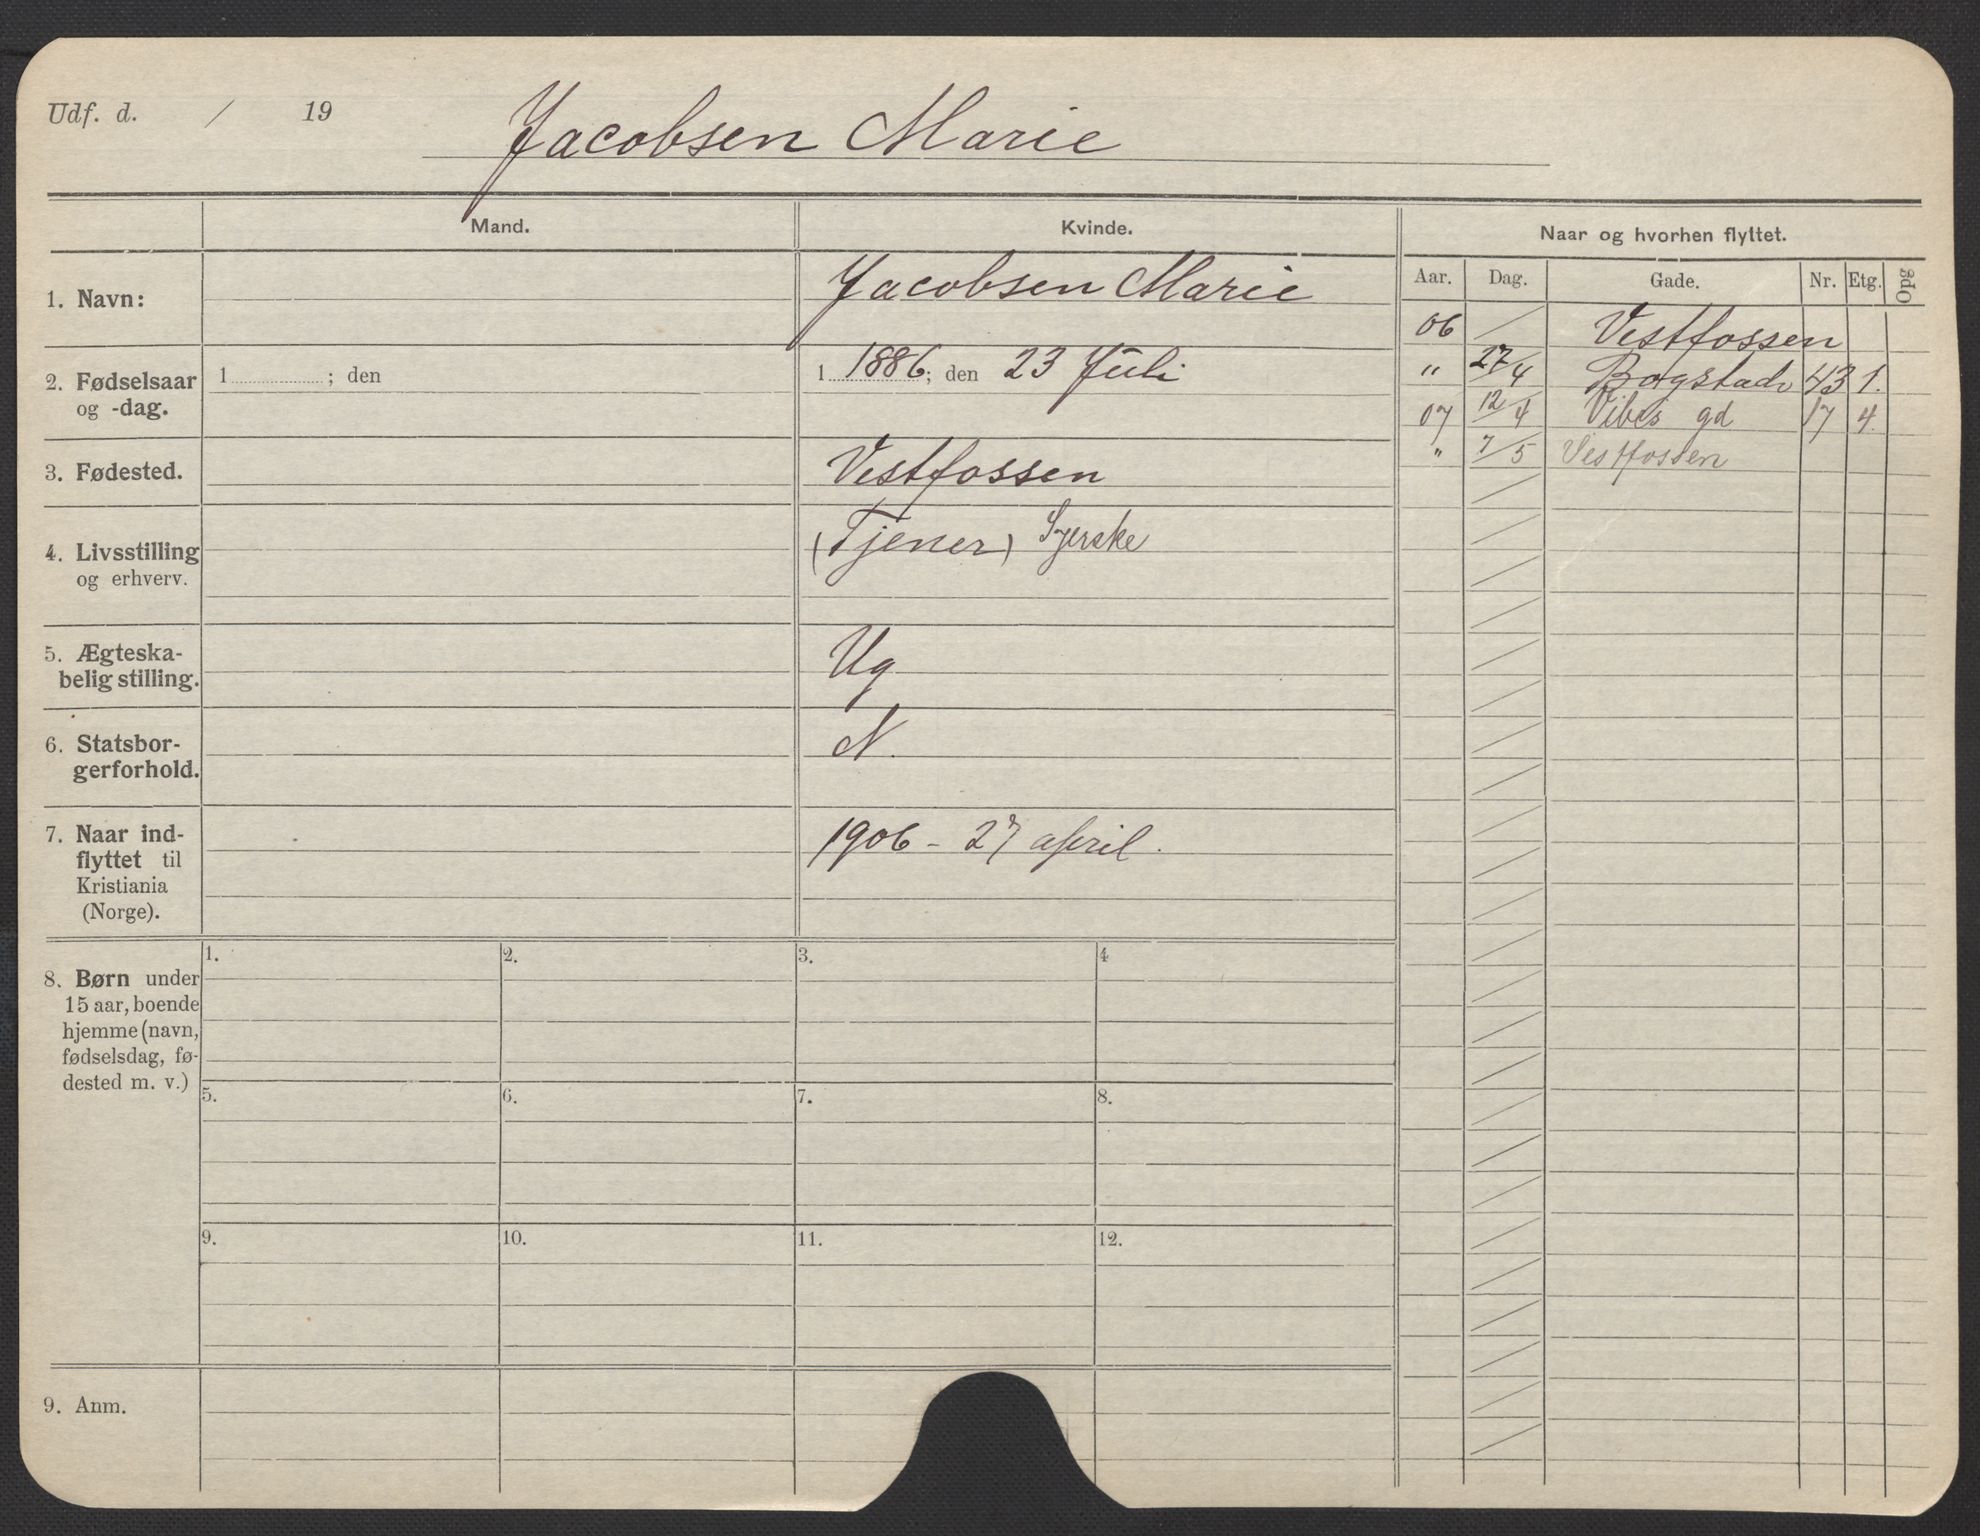 Udf. d. / 19
Jacobsen Marie
Mand. Kvinde. Naar og hvorhen flyttet.
Aar. Dag. Gade. Nr. Etg. Opg
1. Navn: Jacobsen Marie
2. Fødselsaar og -dag. 1 ; den
1 1886; den 23 Juli
3. Fødested. Vestfossen
4. Livsstilling og erhverv. (Tjener) Syerske
5. Ægteska-
belig stilling. Ug
6. Statsbor-
gerforhold. N.
7. Naar ind-
flyttet til
Kristiania
(Norge). 1906 - 27 april.
06 / Vestfossen
" 27/4 Bogstadv 43 1.
07 12/4 Vibes gd 17 4.
" 7/5 Vestfossen
8. Børn under
15 aar, boende
hjemme (navn,
fødselsdag, fø-
dested m. v.)
1. 2. 3. 4
5. 6. 7. 8.
9. 10. 11. 12.
9. Anm.